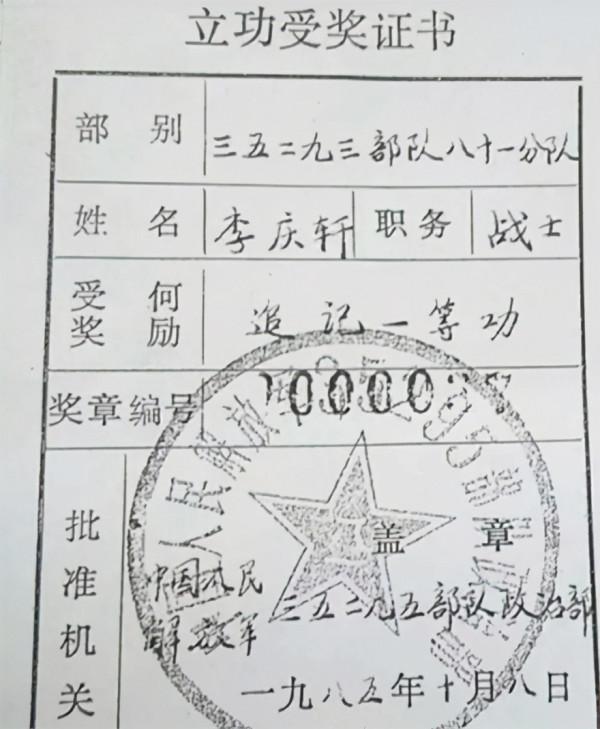 立功受奖证书
部别 三五二九三部队八十一分队
姓名 李庆轩 职务 战士
受何奖励 追记一等功
奖章编号
批准机关
盖章
中国人民
解放军 三五二九五部队政治部
一九八五年十月八日